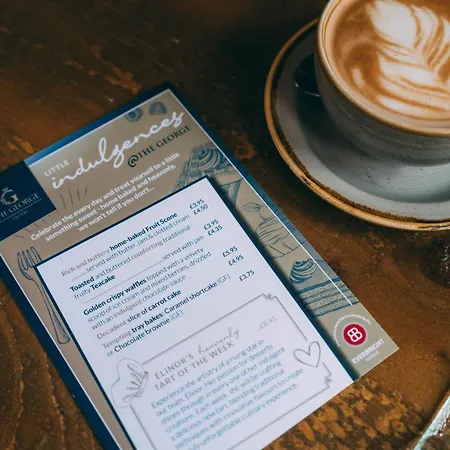 THE GEORGE
HOTEL
LITTLE
indulgences
@THE GEORGE
Celebrate the every day and treat yourself to a little
something sweet - home baked and heavenly,
we won't tell if you don't...
Rich and buttery home-baked Fruit Scone £3.95
served with butter, jam & clotted cream £4.50
Toasted and buttered comforting traditional
fruity Teacake served with jam £3.95
£4.35
Golden crispy waffles topped with a velvety
scoop of ice cream and mixed berries, drizzled
with an indulgent chocolate sauce £5.95
Decadent slice of carrot cake £4.95
Tempting tray bakes: Caramel shortcake (GF)
or Chocolate brownie (GF) £3.75
ELINOR'S heavenly
TART OF THE WEEK £8.95
Experience the artistry of a rising star in
our team, Elinor. Her passion for desserts
shines through in every one of her indulgent
creations. Each week, she will be crafting
a delicious new tart, blending traditional
techniques with innovative flavours to create
unforgettable culinary experience.
EVERYNIGHT